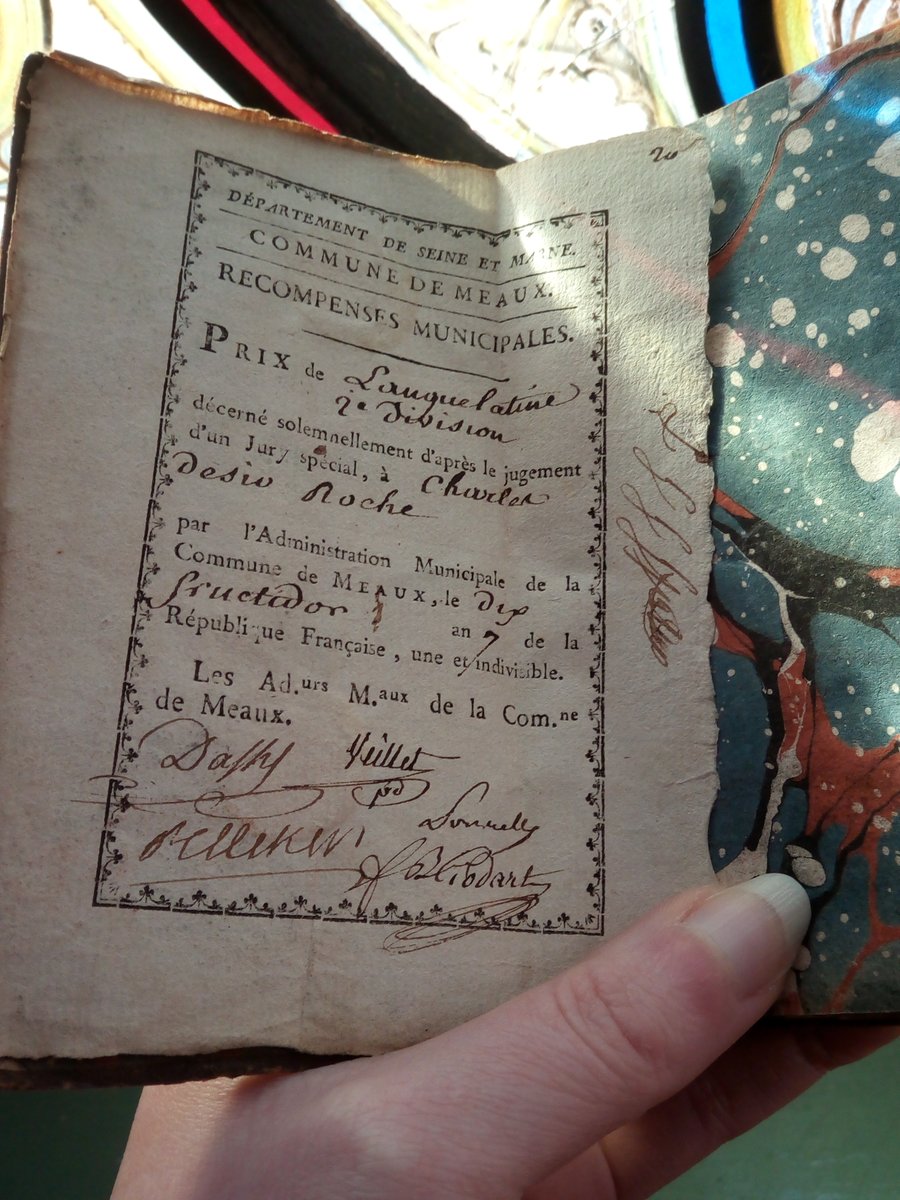 DÉPARTEMENT DE SEINE ET MARNE.
COMMUNE DE MEAUX.
RECOMPENSES MUNICIPALES.
PRIX de Langue latine
2e Division
décerné solemnellement d'après le jugement
d'un Jury spécial, à Charles
Roche
par l'Administration Municipale de la
Commune de MEAUX, le dix
fructidor an 7 de la
République Française, une et indivisible.
Les Ad.urs M.aux de la Com.ne
de Meaux.
Veillet